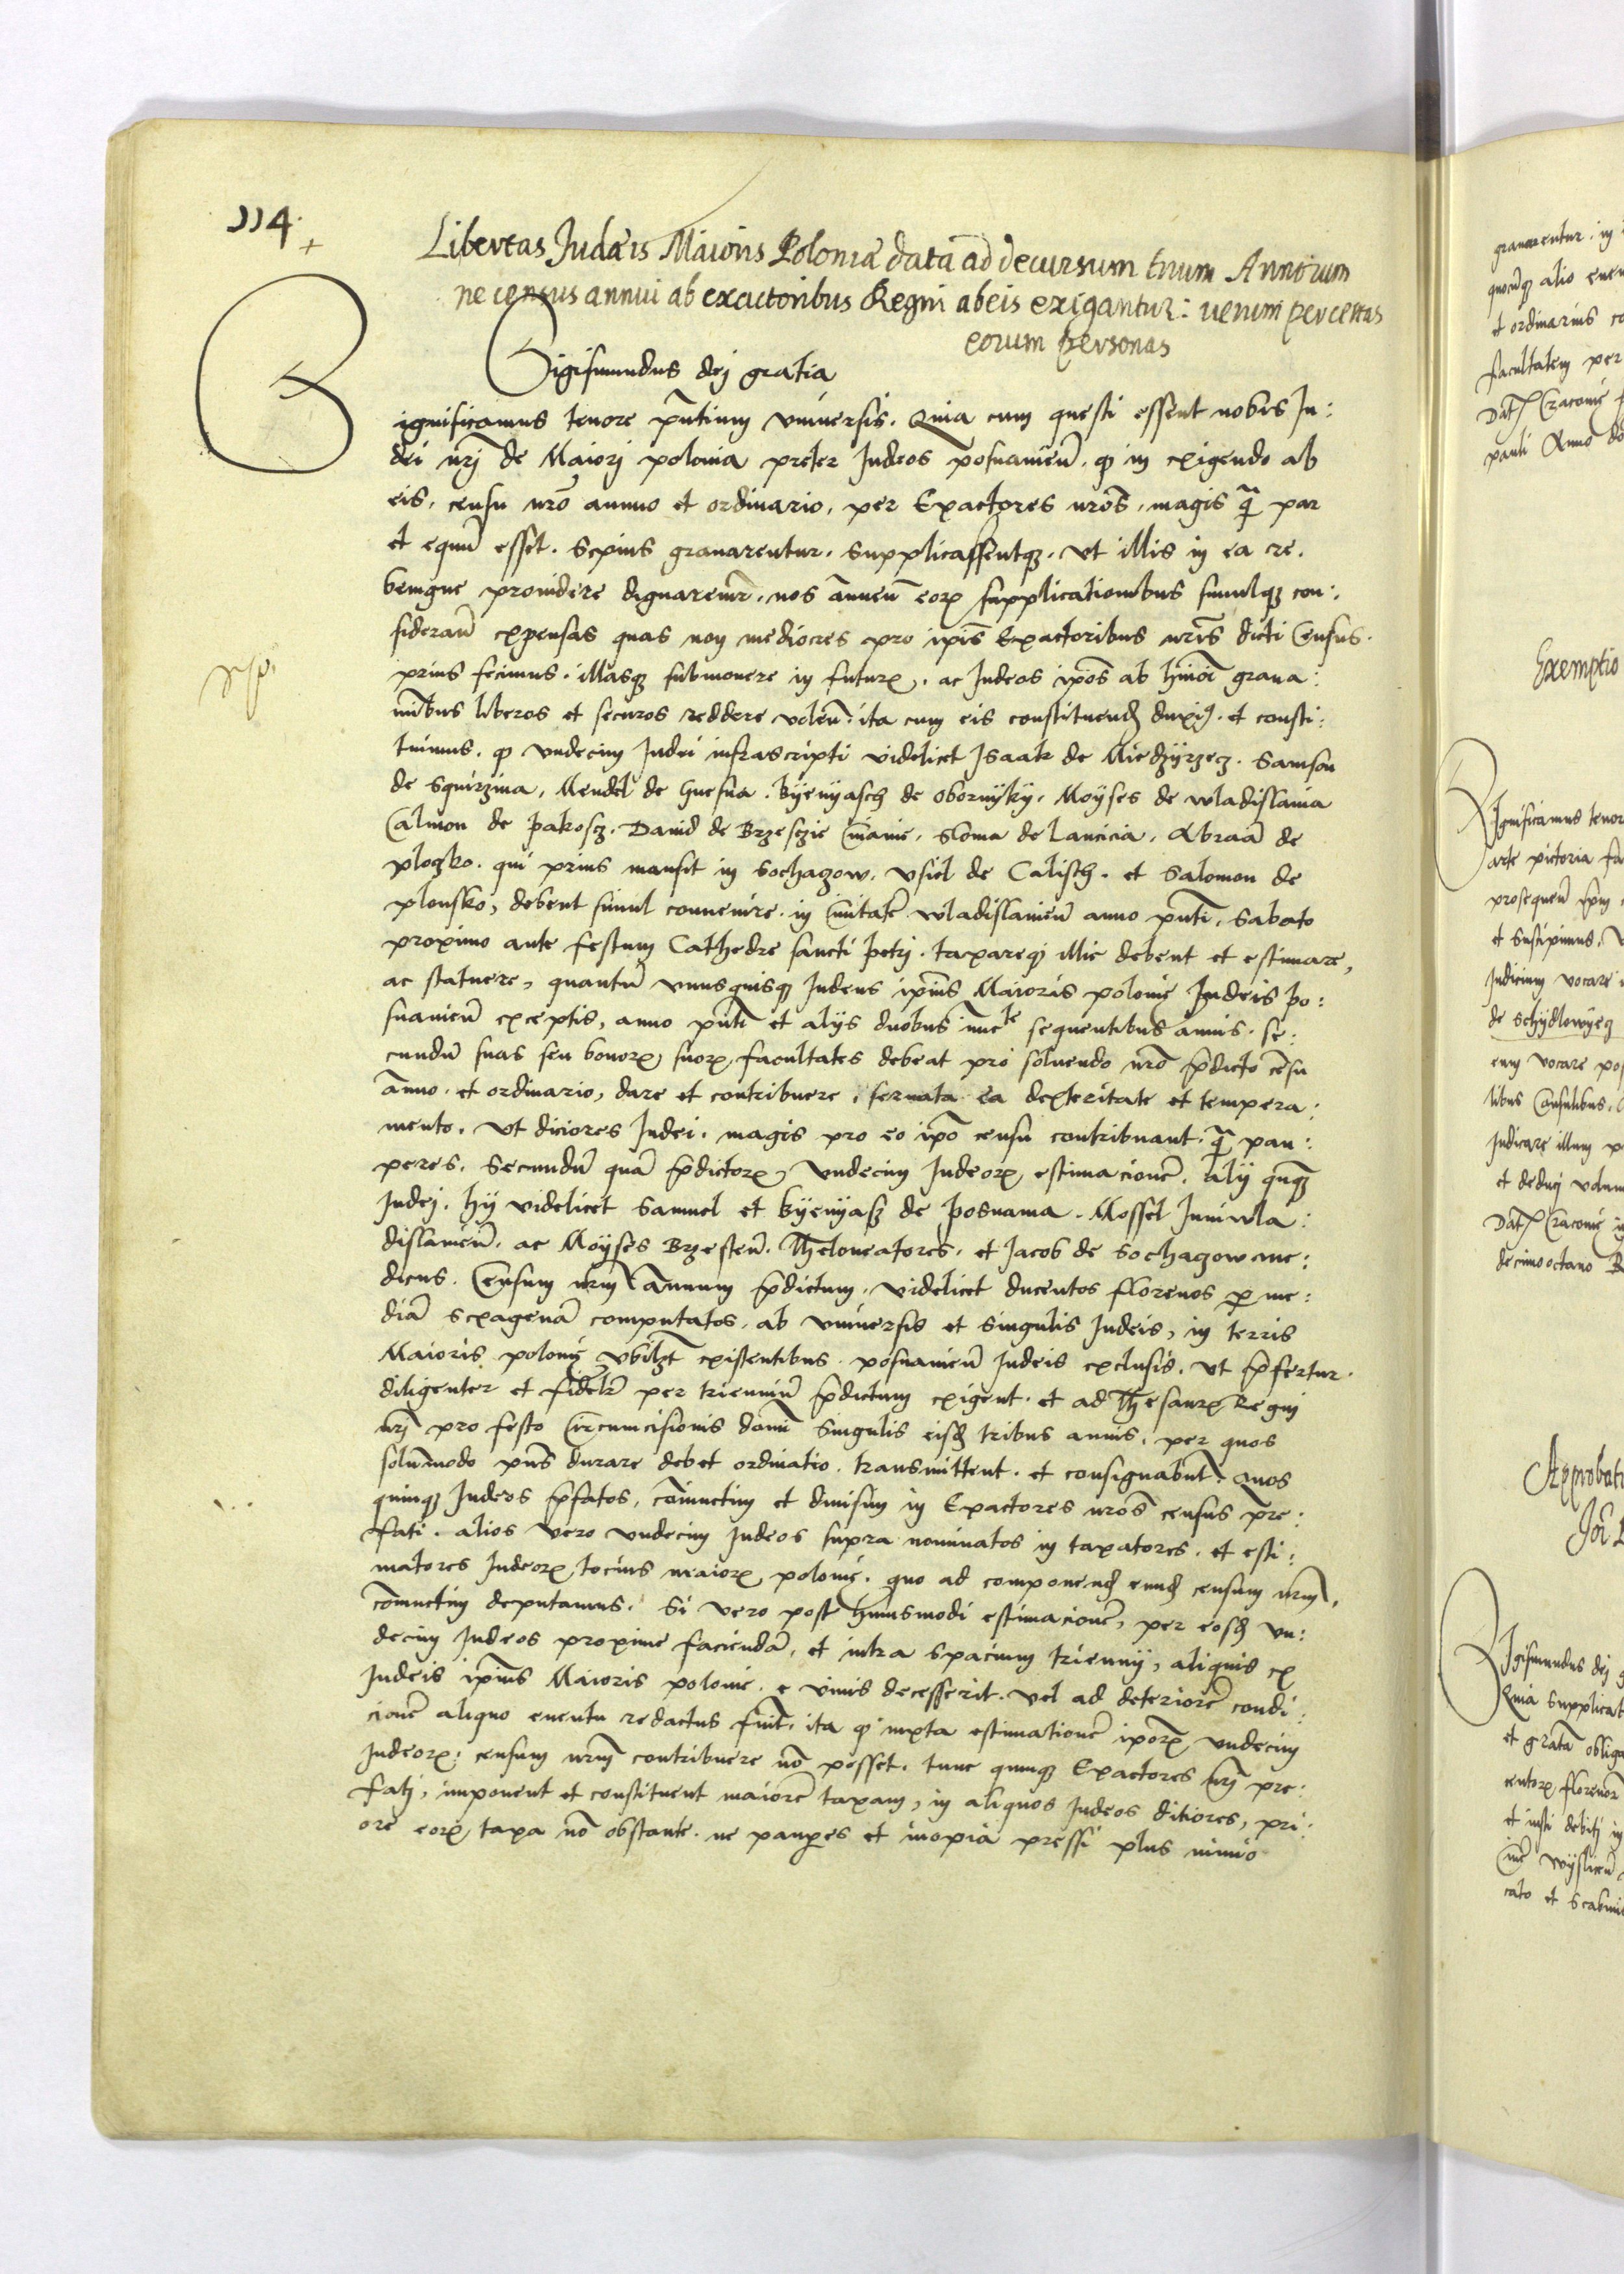 114.
+
Libertas Judæis Maioris Poloniæ data ad decursum trium Annorum
ne census annui ab exactoribus Regni ab eis exigantur: uerum per certas
eorum personas
Sigismundus dej gratia
Significamus tenore pñtium vniuersis. Quia cum questi essent nobis Ju:
dei nrj de Maiorj polonia preter Judeos posnanieñ. qp in exigendo ab
eis, censu nro annuo et ordinario, per Exactores nros, magis q̃ par
et equũ esset. Sepius grauarentur. Supplicassentqz. Vt illis in ea re.
benigne prouidere dignaremr. nos añueñ eorꝝ supplicationibus simulqz con:
siderañ expensas quas non mediocres pro ipis Exactoribus nris dicti Census.
prius fecimus. illasqz submouere in futurꝝ. ac Judeos ipos ab hmoi graua:
minibus liberos et securos reddere voleñ. ita cum eis constituend duxim9. et consti:
tuimus. qp vndecim Judei infrascripti videlicet Isaak de Miedzyrzecz. Samson
de Squirzina, Mendel de Gnesna. Byenyasch de obornyky. Moyses de wladislauia
Calmon de pakosz. Dauid de Brzesczie Cuiauie. Sloma de Lancicia. Abraã de
ploczko. qui prius mansit in Sochaczow. Vsiel de Calisch. et Salomon de
plonsko, debent simul conuenire. in Ciuitate wladislauieñ anno pñti. Sabato
proximo ante festum Cathedre sancti petrj. taxareqz illic debent et estimare,
ac statuere, quantũ vnusquisqz Judeus ipius Maioris polonie Judeis po:
snanieñ exceptis, anno pñti et alijs duobus imte sequentibus annis. se:
cundũ suas seu bonorꝝ suorꝝ facultates debeat pro soluendo nro p̃dicto cẽsu
ãnuo. et ordinario, dare et contribuere. seruata ea dexteritate et tempera:
mento. Vt diciores Judei. magis pro eo ipo censu contribuant. q̃ pau:
peres. Secundũ quã p̃dictorꝝ vndecim Judeorꝝ estimacionẽ. alij quinqz
Judej. hij videlicet Samuel et Byenyasz de posnania. Mossel Juniwla:
dislauieñ. ac Moyses Brzesteñ. Theloneatores. et Jacob de Sochaczow me:
dicus. Censum nrm ãnuum p̃dictum. videlicet ducentos florenos p me:
diã sexagenã computatos. ab vniuersis et singulis Judeis, in terris
Maioris polonie vbilzt existentibus. posnanieñ Judeis exclusis. Vt p̃fertur.
diligenter et fidelr per trienniũ p̃dictum exigent. et ad Thesaurꝝ Regni
nrj pro festo Circumcisionis domi singulis eisd tribus annis. per quos
solũmodo pñs durare debet ordinatio. transmittent. et consignabnt. Quos
quinqz Judeos p̃fatos, coniunctim et diuisim in Exactores nros census pre:
fati. alios vero vndecim Judeos supra nominatos in taxatores. et esti:
matores Judeorꝝ tocius maiorꝝ polonie. quo ad componend eund censum nrm,
coniunctim deputamus. Si vero post huiusmodi estimacionẽ, per eosd vn:
decim Judeos proxime faciendã, et intra spacium triennij, aliquis ex
Judeis ipius Maioris polonie. e viuis decesserit. vel ad deteriorẽ condi:
cionẽ aliquo euentu redactus fuit. ita qp iuxta estimationẽ iporꝝ vndecim
Judeorꝝ. censum nrm contribuere nõ posset. tunc quinqz Exactores nrj pre:
fatj, imponent et constituent maiorẽ taxam, in aliquos Judeos diciores, pri:
ore eorꝝ taxa nõ obstante. ne paupes et inopia pressi plus nimio
grauarentur. in
quocũqz alio euen
et ordinarius co
facultatem per
Dat Cracouie
pauli Anno do
Exemptio
Significamus tenor
arte pictoria fa
prosequeñ ipm
et suscipimus.
Judicium vocare
de Schydlowyecz
eum vocare pos
libus Consulibus.
Judicare illum p
et deducj volum
Dat Cracouie in
decimooctauo
Approbati
Sigismundus dej g
Quia supplicat
et gratã obliga
entorꝝ florenor
et iusti debitj in
wysliceñ
cato et Scabini